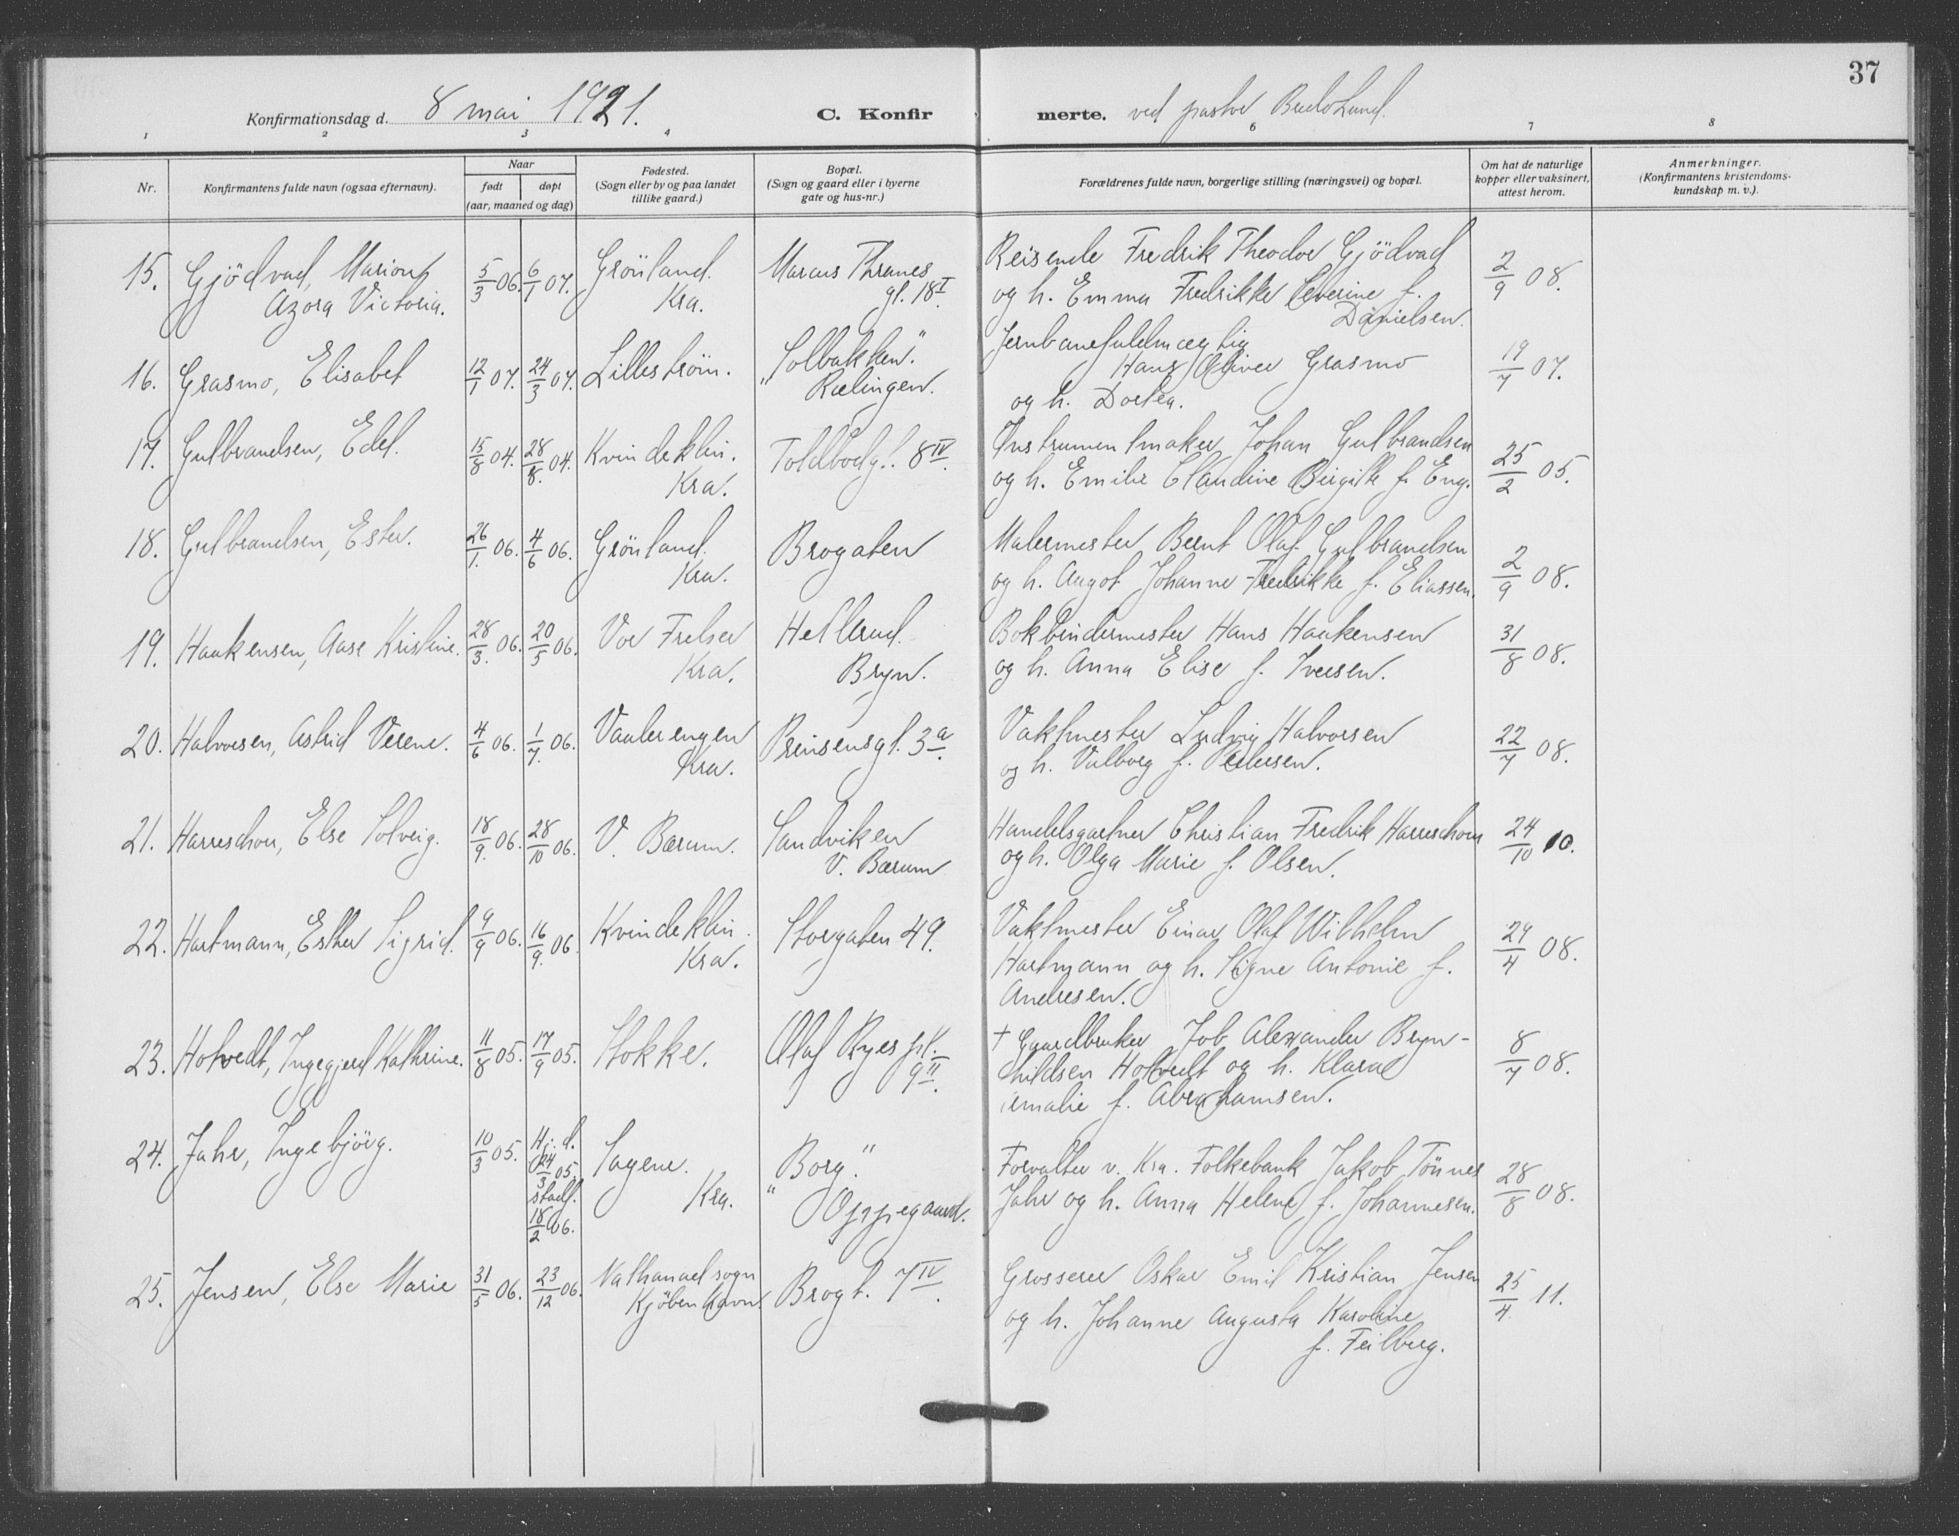 37
Konfirmationsdag d. 8 mai 1921. C. Konfirmerte. ved pastor
1 2 3 4 6 7 8
Nr. Konfirmantens fulde navn (ogsaa efternavn). Naar født døpt (aar, maaned og dag) Fødested. (Sogn eller by og paa landet tillike gaard.) Bopæl. (Sogn og gaard eller i byerne gate og hus-nr.) Forældrenes fulde navn, borgerlige stilling (næringsvei) og bopæl. Om hat de naturlige kopper eller vaksinert, attest herom. Anmerkninger. (Konfirmantens kristendomskundskap m. v.).
15. Gjödvad, Marion Azora Victoria. 5/3 06. 6/1 07. Grönland. Kra. Marcus Thranes gt. 18 I. Reisende Fredrik Theodor Gjödvad og h. Emma Fredrikke Severine f. Danielsen. 2/9 08.
16. Grasmo, Elisabet 12/1 07. 24/3 07. Lilleström. "Solbakken". Rælingen. Jernbanefuldmægtig Hans Oliver Grasmo og h. Dortea. 19/7 07.
17. Gulbrandsen, Edel. 15/8 04. 28/8. 04. Kvindeklin. Kra. Toldbodgt. 8 IV. Instrumentmaker Johan Gulbrandsen og h. Emilie Claudine Birgitte f. Eng. 25/2 05.
18. Gulbrandsen, Ester. 26/1. 06. 4/6 06. Grönland. Kra. Brogaten Malermester Bernt Olaf Gulbrandsen og h. Aagot Johanne Fredrikke f. Eliassen. 2/9 08.
19. Haakensen, Aase Kristine. 28/3. 06. 20/5 06. Vor Frelser Kra. Hellerud. Bryn. Bokbindermester Hans Haakensen og h. Anna Elise f. Iversen. 31/8 08.
20. Halvorsen, Astrid Verene. 4/6 06. 1/7. 06. Vaalerengen Kra. Prinsensgt. 3 a. Vaktmester Ludvig Halvorsen og h. Valborg f. Pedersen. 22/7 08.
21. Harreschou, Else Solveig. 18/9. 06. 28/10 06. V. Bærum. Sandviken V. Bærum Handelsgartner Christian Fredrik Harreschou og h. Olga Marie f. Olsen. 24/10 10.
22. Hartmann, Esther Sigrid. 9/9 06. 16/9. 06. Kvindeklin. Kra. Storgaten 49. Vaktmester Einar Olaf Wilhelm Hartmann og h. Signe Antonie f. Andresen. 29/4 08.
23. Hotvedt, Ingegjerd Kathrine. 11/8 05. 17/9 05. Stokke. Olaf Ryes pl. 9 II. † Gaardbruker Job Alexander Brynhildsen Hotvedt og h. Klara Amalie f. Abrahamsen. 8/7 08.
24. Jahr, Ingebjörg. 10/3 05. Hj. d. 24/3 05. stadf. 18/2 06. Sagene. Kra. "Borg." Oppegaard. Forvalter v. Kra. Folkebank Jakob Tönnes Jahr og h. Anna Helene f. Johannesen. 28/8 08.
25. Jensen, Else Marie 31/5 06. 23/12 06. Nathanael sogn Kjöbenhavn. Brogt. 7 IV. Grosserer Oskar Emil Kristian Jensen og h. Johanne Augusta Karoline f. Feilberg. 25/4 11.